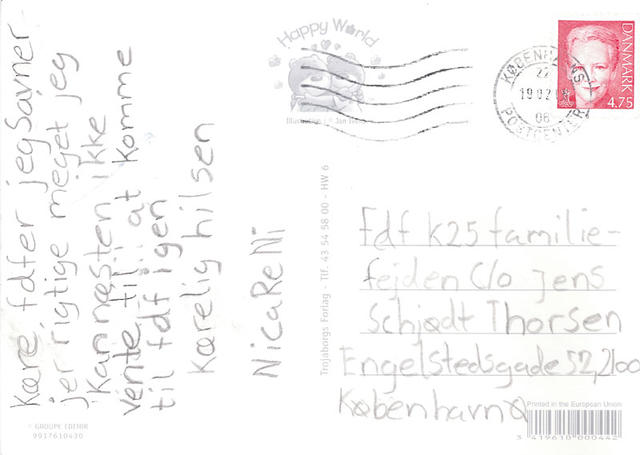 Kære fdfer jeg Savner
jer rigtige meget jeg
Kan næsten ikke
vente til at komme
til fdf igen
Kærelig hilsen
NicaReNi
Happy World
DANMARK
4.75
KØBENHAVNS
POSTCENTER
Trojaborgs Forlag - Tlf. 43 54 58 00 - HW 6
Fdf K25 familie-
fejden C/o Jens
Schjødt Thorsen
Engelstedsgade 52, 2100
København Ø
© GROUPE EDITOR
9917610430
Printed in the European Union
3 419610 000442